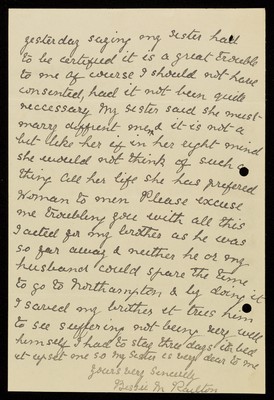 yesterday saying my sister had
to be certified it is a great trouble
to me of course I should not have
consented, had it not been quite
neccessary My sister said she must
marry diffrent men it is not a
bit like her if in her right mind
she would not think of such a
thing All her life she has prefered
Woman to men Please excuse
me troubling you with all this
I acted for my brother as he was
so far away & neither he or my
husband could spare the time
to go to Northampton & by doing it
I saved my brother it tries him
to see suffering not being very well
himself I had to stay three days in bed
it upset me so My Sister is very dear to me
Yours very sincerely
Bessie M Railton